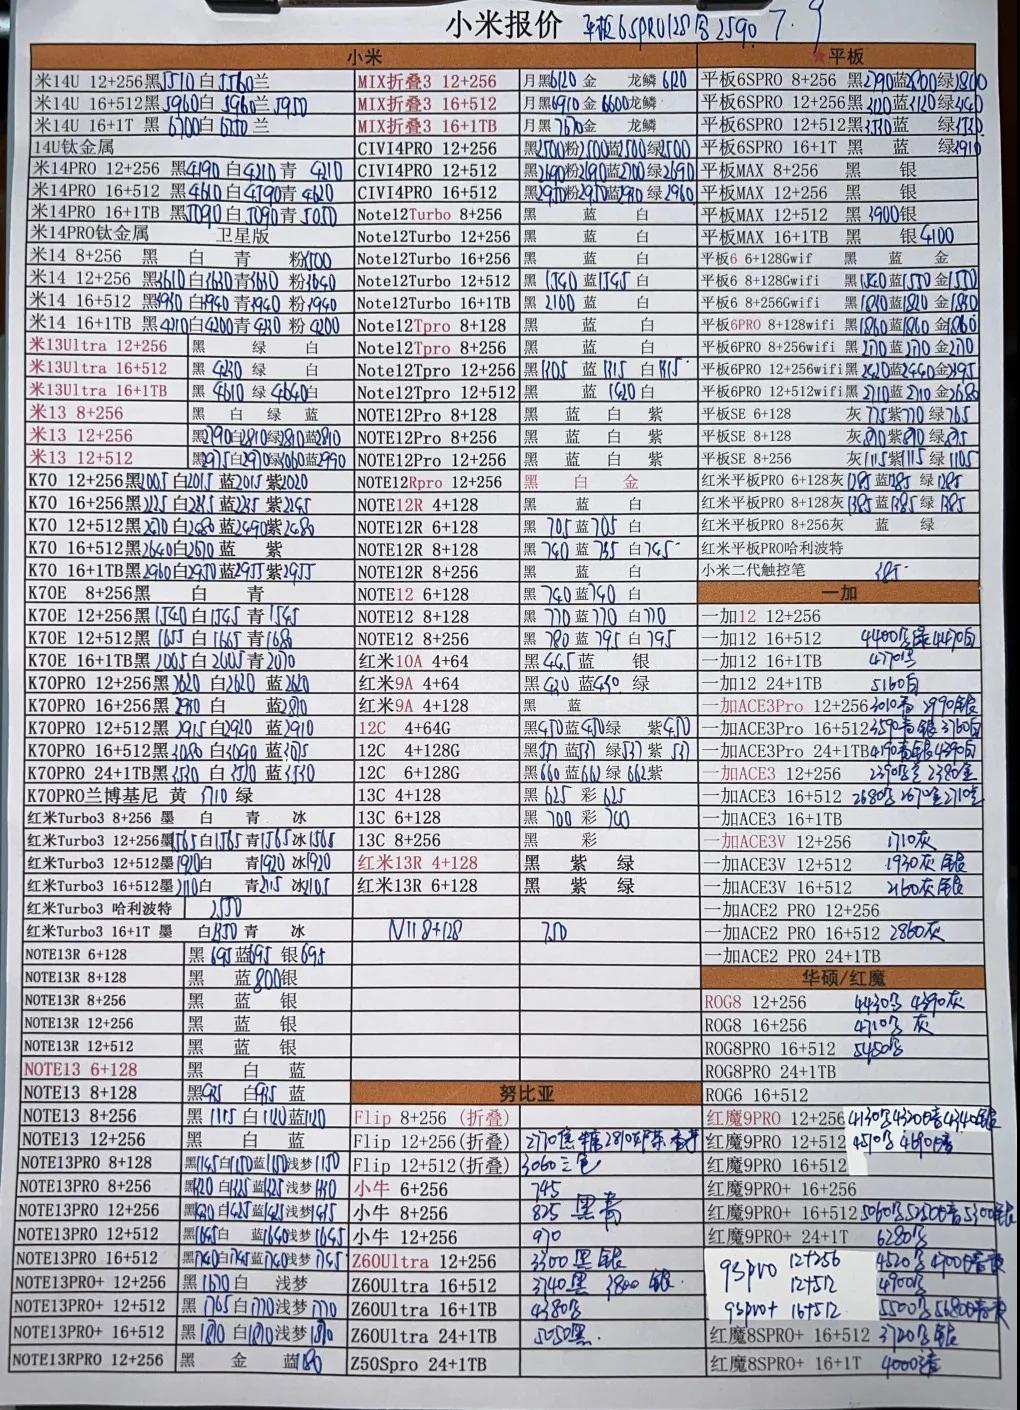 小米报价 平板6SPRO128 2590 7.9
小米
米14U 12+256 黑5510 白5560 兰
米14U 16+512 黑5960 白5960 兰5950
米14U 16+1T 黑6700 白 兰
14U钛金属
米14PRO 12+256 黑4190 白4210 青4210
米14PRO 16+512 黑4610 白 青4620
米14PRO 16+1TB 黑5090 白5090 青5050
米14PRO钛金属 卫星版
米14 8+256 黑 白 青 粉
米14 12+256 黑3610 白3630 青3630 粉3640
米14 16+512 黑 白3940 青3940 粉3940
米14 16+1TB 黑4210 白4200 青 粉4200
米13Ultra 12+256 黑 绿 白
米13Ultra 16+512 黑4230 绿 白
米13Ultra 16+1TB 黑4610 绿4640 白
米13 8+256 黑 白 绿 蓝
米13 12+256 黑2790 白2810 绿2810 蓝2810
米13 12+512 黑2975 白2970 绿3060 蓝2990
K70 12+256 黑2005 白2015 蓝2015 紫2020
K70 16+256 黑2225 白 蓝2235 紫2245
K70 12+512 黑2470 白2480 蓝2490 紫2480
K70 16+512 黑2640 白2670 蓝 紫
K70 16+1TB 黑2960 白2950 蓝2955 紫2955
K70E 8+256 黑 白 青
K70E 12+256 黑1540 白1545 青1545
K70E 12+512 黑1655 白1665 青1680
K70E 16+1TB 黑2005 白2005 青2070
K70PRO 12+256 黑2620 白2620 蓝2620
K70PRO 16+256 黑 白 蓝
K70PRO 12+512 黑2915 白2920 蓝2910
K70PRO 16+512 黑3080 白3090 蓝3075
K70PRO 24+1TB 黑3530 白 蓝3530
K70PRO兰博基尼 黄3710 绿
红米Turbo3 8+256 墨 白 青 冰
红米Turbo3 12+256 墨1565 白1565 青1565 冰1565
红米Turbo3 12+512 墨1920 白 青1920 冰1920
红米Turbo3 16+512 墨2110 白 青2115 冰2105
红米Turbo3 哈利波特 2550
红米Turbo3 16+1T 墨 白 青 冰
NOTE13R 6+128 黑695 蓝695 银695
NOTE13R 8+128 黑 蓝800 银
NOTE13R 8+256 黑 蓝 银
NOTE13R 12+256 黑 蓝 银
NOTE13R 12+512 黑 蓝 银
NOTE13 6+128 黑 白 蓝
NOTE13 8+128 黑 白 蓝
NOTE13 8+256 黑1115 白1120 蓝1120
NOTE13 12+256 黑 白 蓝
NOTE13PRO 8+128 黑1145 白1150 蓝1150 浅梦1150
NOTE13PRO 8+256 黑 白 蓝 浅梦
NOTE13PRO 12+256 黑 白 蓝 浅梦
NOTE13PRO 12+512 黑1645 白 蓝1640 浅梦1645
NOTE13PRO 16+512 黑1740 白1745 蓝1740 浅梦1745
NOTE13PRO+ 12+256 黑1570 白 浅梦
NOTE13PRO+ 12+512 黑1765 白1770 浅梦1770
NOTE13PRO+ 16+512 黑1810 白1810 浅梦1810
NOTE13RPRO 12+256 黑 金 蓝
MIX折叠3 12+256 月黑6120 金 龙鳞6120
MIX折叠3 16+512 月黑6910 金6600 龙鳞
MIX折叠3 16+1TB 月黑7670 金 龙鳞
CIVI4PRO 12+256 黑2500 粉2500 蓝2500 绿2500
CIVI4PRO 12+512 黑2690 粉2690 蓝2700 绿2690
CIVI4PRO 16+512 黑2970 粉2950 蓝 绿2960
Note12Turbo 8+256 黑 蓝 白
Note12Turbo 12+256 黑 蓝 白
Note12Turbo 16+256 黑 蓝 白
Note12Turbo 12+512 黑1540 蓝1545 白
Note12Turbo 16+1TB 黑2100 蓝 白
Note12Tpro 8+128 黑 蓝 白
Note12Tpro 8+256 黑 蓝 白
Note12Tpro 12+256 黑1305 蓝1315 白1315
Note12Tpro 12+512 黑 蓝1420 白
NOTE12Pro 8+128 黑 蓝 白 紫
NOTE12Pro 8+256 黑 蓝 白 紫
NOTE12Pro 12+256 黑 蓝 白 紫
NOTE12Rpro 12+256 黑 白 金
NOTE12R 4+128 黑 蓝 白
NOTE12R 6+128 黑705 蓝705 白
NOTE12R 8+128 黑740 蓝735 白745
NOTE12R 8+256 黑 蓝 白
NOTE12 6+128 黑740 蓝740 白
NOTE12 8+128 黑770 蓝770 白770
NOTE12 8+256 黑780 蓝795 白795
红米10A 4+64 黑445 蓝 银
红米9A 4+64 黑430 蓝430 绿
红米9A 4+128 黑 蓝
12C 4+64G 黑450 蓝450 绿 紫450
12C 4+128G 黑531 蓝531 绿531 紫531
12C 6+128G 黑660 蓝662 绿662 紫
13C 4+128 黑625 彩625
13C 6+128 黑700 彩700
13C 8+256 黑 彩
红米13R 4+128 黑 紫 绿
红米13R 6+128 黑 紫 绿
N11 8+128 750
努比亚
Flip 8+256 (折叠)
Flip 12+256(折叠) 2770
Flip 12+512(折叠) 3060三色
小牛 6+256 745
小牛 8+256 825 黑青
小牛 12+256 970
Z60Ultra 12+256 3300 黑银
Z60Ultra 16+512 3740黑 3800 银
Z60Ultra 16+1TB 4380
Z60Ultra 24+1TB 5050黑
Z50Spro 24+1TB
★平板
平板6SPRO 8+256 黑2790 蓝2800 绿2800
平板6SPRO 12+256 黑3120 蓝3120 绿
平板6SPRO 12+512 黑3530 蓝 绿3530
平板6SPRO 16+1T 黑 蓝 绿3910
平板MAX 8+256 黑 银
平板MAX 12+256 黑 银
平板MAX 12+512 黑3900 银
平板MAX 16+1TB 黑 银4100
平板6 6+128Gwif 黑 蓝 金
平板6 8+128Gwifi 黑1540 蓝1550 金1550
平板6 8+256Gwifi 黑1810 蓝1820 金1810
平板6PRO 8+128wifi 黑1860 蓝1860 金1860
平板6PRO 8+256wifi 黑2170 蓝2170 金2170
平板6PRO 12+256wifi 黑2420 蓝2440 金2395
平板6PRO 12+512wifi 黑2710 蓝2710 金2680
平板SE 6+128 灰775 紫770 绿765
平板SE 8+128 灰 紫 绿
平板SE 8+256 灰1115 紫1115 绿1105
红米平板PRO 6+128 灰1285 蓝1285 绿1285
红米平板PRO 8+128 灰1385 蓝1385 绿1385
红米平板PRO 8+256 灰 蓝 绿
红米平板PRO哈利波特
小米二代触控笔 385
一加
一加12 12+256
一加12 16+512 4400 4470白
一加12 16+1TB 4770
一加12 24+1TB 5160白
一加ACE3Pro 12+256 3010青 2990银
一加ACE3Pro 16+512 3590青银 3760白
一加ACE3Pro 24+1TB 4190青银 4390白
一加ACE3 12+256 2390 2380金
一加ACE3 16+512 2680 2670金 2710
一加ACE3 16+1TB
一加ACE3V 12+256 1710灰
一加ACE3V 12+512 1930灰银
一加ACE3V 16+512 2160灰银
一加ACE2 PRO 12+256
一加ACE2 PRO 16+512 2860灰
一加ACE2 PRO 24+1TB
华硕/红魔
ROG8 12+256 4430 4390灰
ROG8 16+256 4710 灰
ROG8PRO 16+512 5450
ROG8PRO 24+1TB
ROG6 16+512
红魔9PRO 12+256 4130 4320 4340银
红魔9PRO 12+512 4510 4690
红魔9PRO 16+512
红魔9PRO+ 16+256
红魔9PRO+ 16+512 5060 5250 5300银
红魔9PRO+ 24+1T 6280
9spro 12+256 4520 4700
12+512 4900
9spro+ 16+512 5500 5680
红魔8SPRO+ 16+512 3720银
红魔8SPRO+ 16+1T 4000